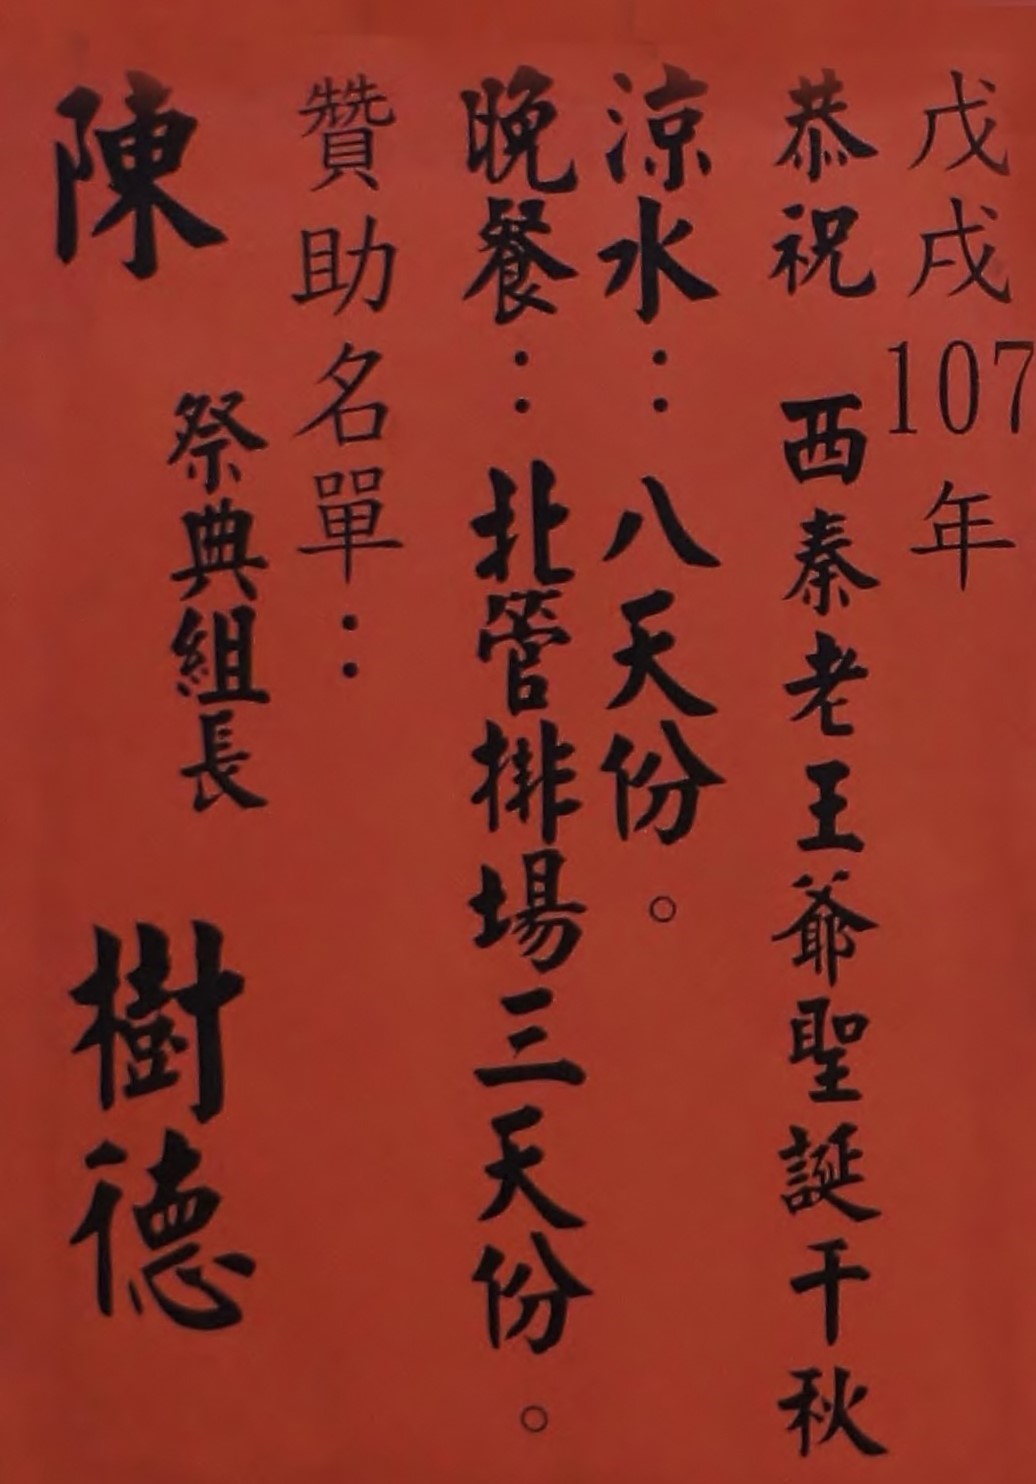 戊戌107年
恭祝 西秦老王爺聖誕千秋
涼水：八天份。
晚餐：北管排場三天份。
贊助名單：
祭典組長
陳 樹德